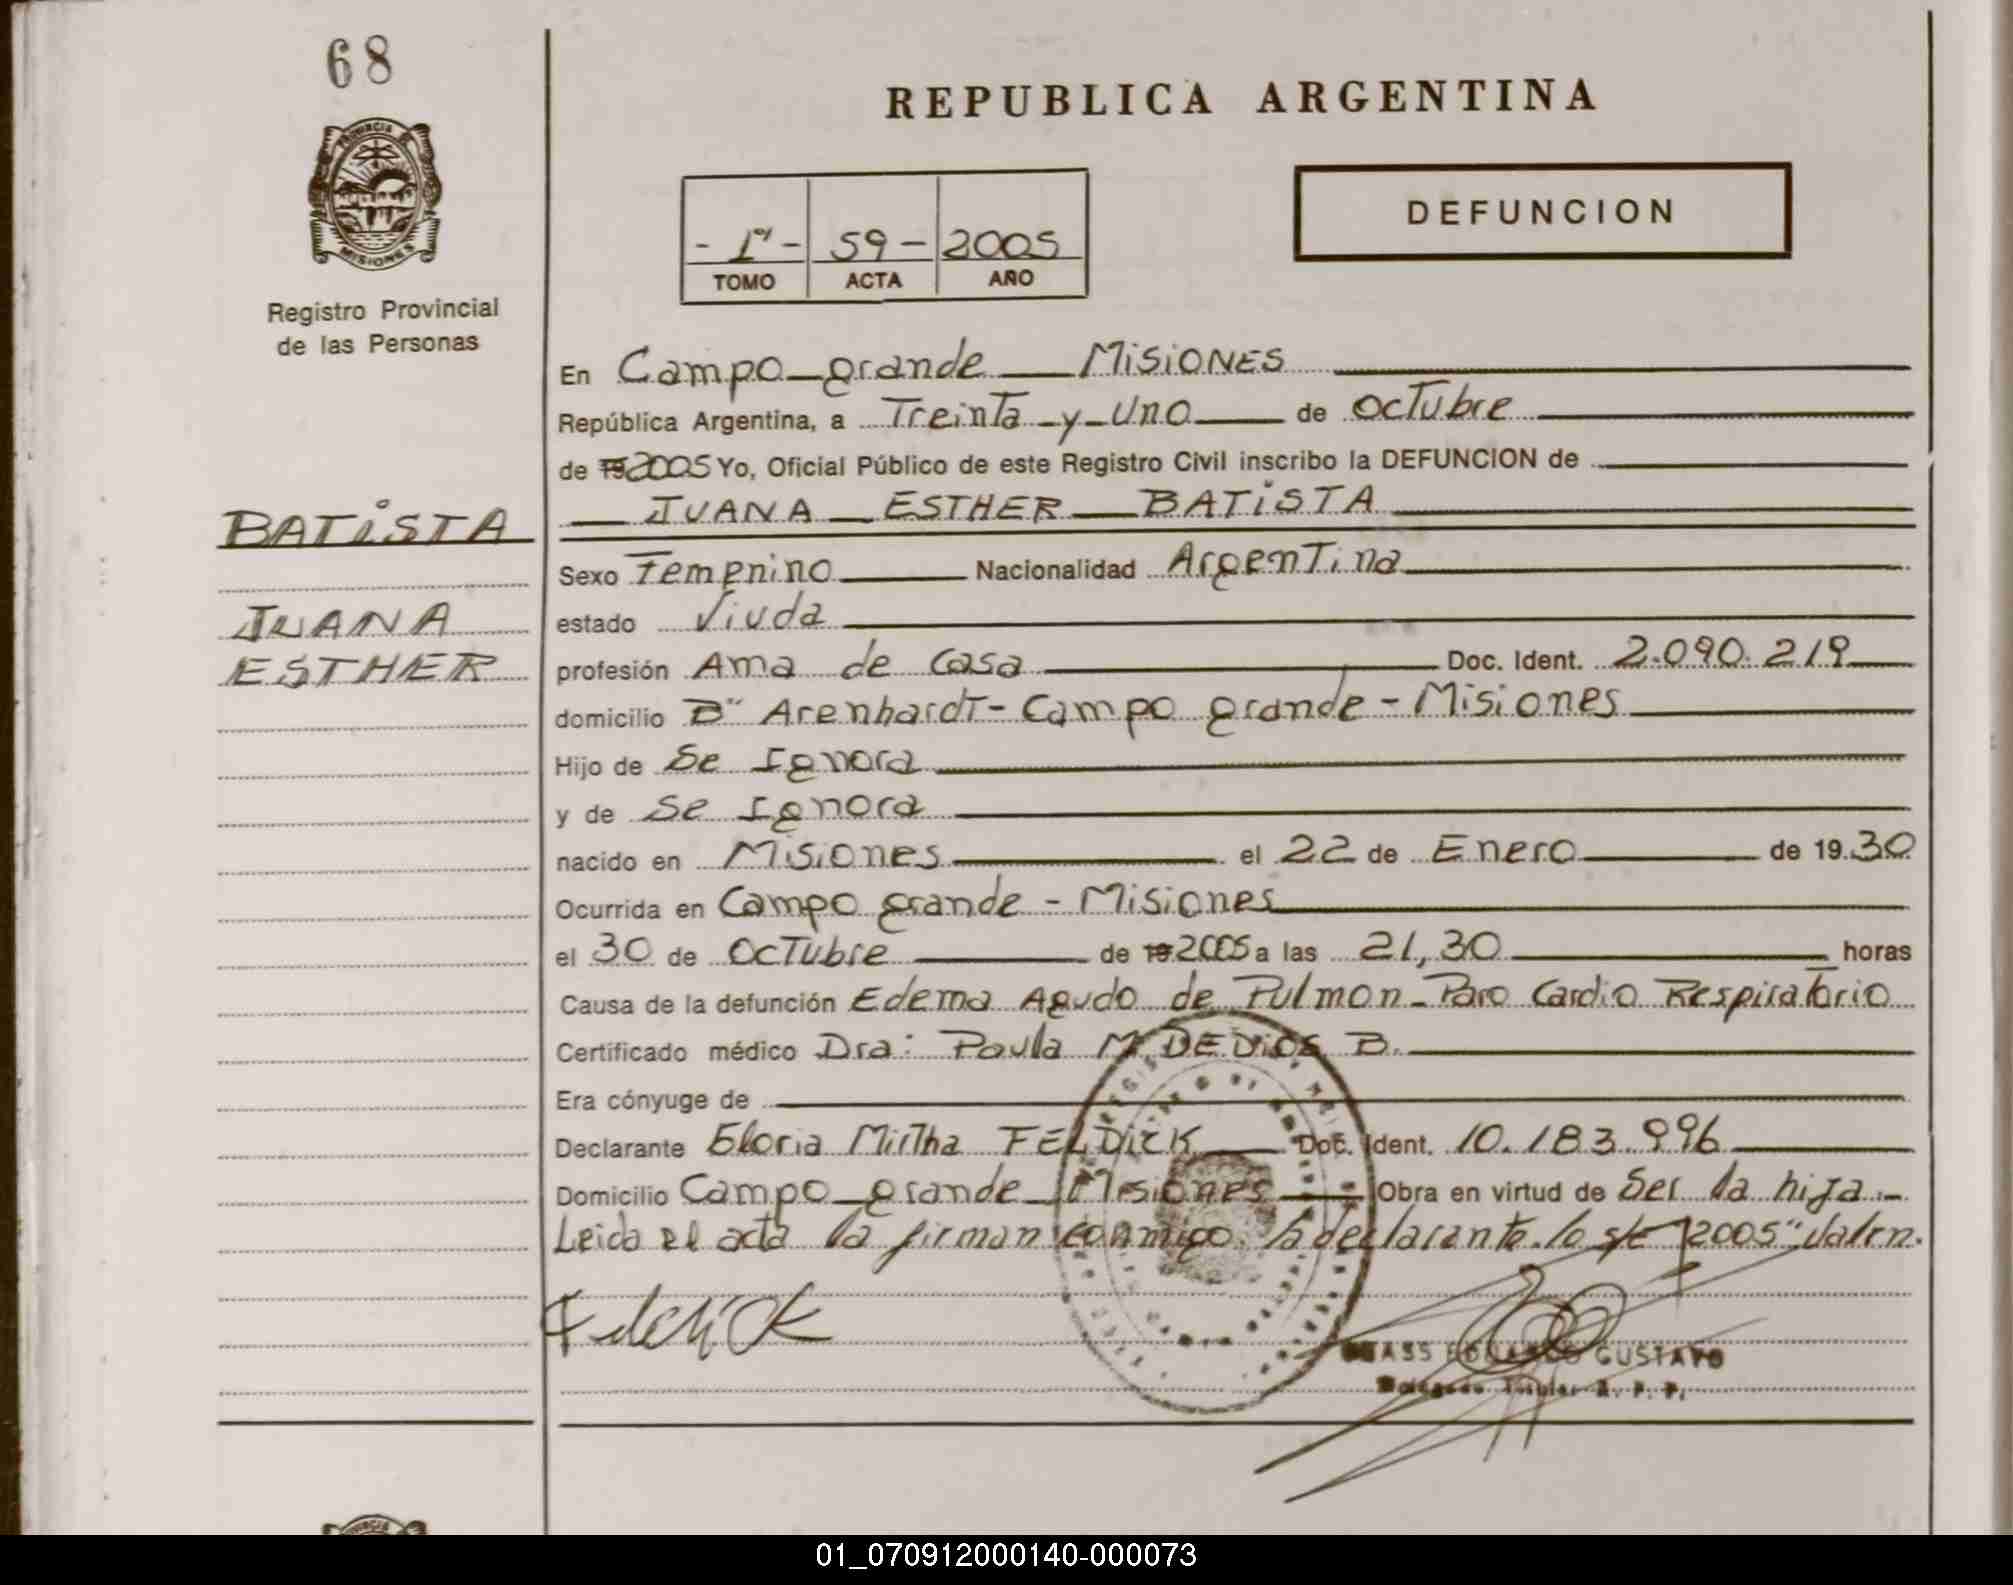 68
PROVINCIA DE
MISIONES
Registro Provincial
de las Personas
REPUBLICA ARGENTINA
DEFUNCION
- 1º - 59 - 2005
TOMO ACTA AÑO
En Campo grande Misiones
República Argentina, a Treinta y Uno de octubre
de 19 2005 Yo, Oficial Público de este Registro Civil inscribo la DEFUNCION de
JUANA ESTHER BATISTA
BATISTA
JUANA
ESTHER
Sexo Femenino Nacionalidad Argentina
estado Viuda
profesión Ama de casa Doc. Ident. 2.090.219
domicilio Bº Arenhardt - Campo grande - Misiones
Hijo de Se Ignora
y de Se Ignora
nacido en Misiones el 22 de Enero de 19 30
Ocurrida en Campo grande - Misiones
el 30 de Octubre de 19 2005 a las 21,30 horas
Causa de la defunción Edema Agudo de Pulmon - Paro Cardio Respiratorio
Certificado médico Dra: Paula M. DE DiOS B.
Era cónyuge de
Declarante Gloria Mirtha FELDICK Doc. Ident. 10.183.996
Domicilio Campo grande Misiones Obra en virtud de Ser la hija.-
Leida el acta la firman conmigo la declarante. lo s/e "2005" valen.
EDUARDO GUSTAVO
01_070912000140-000073